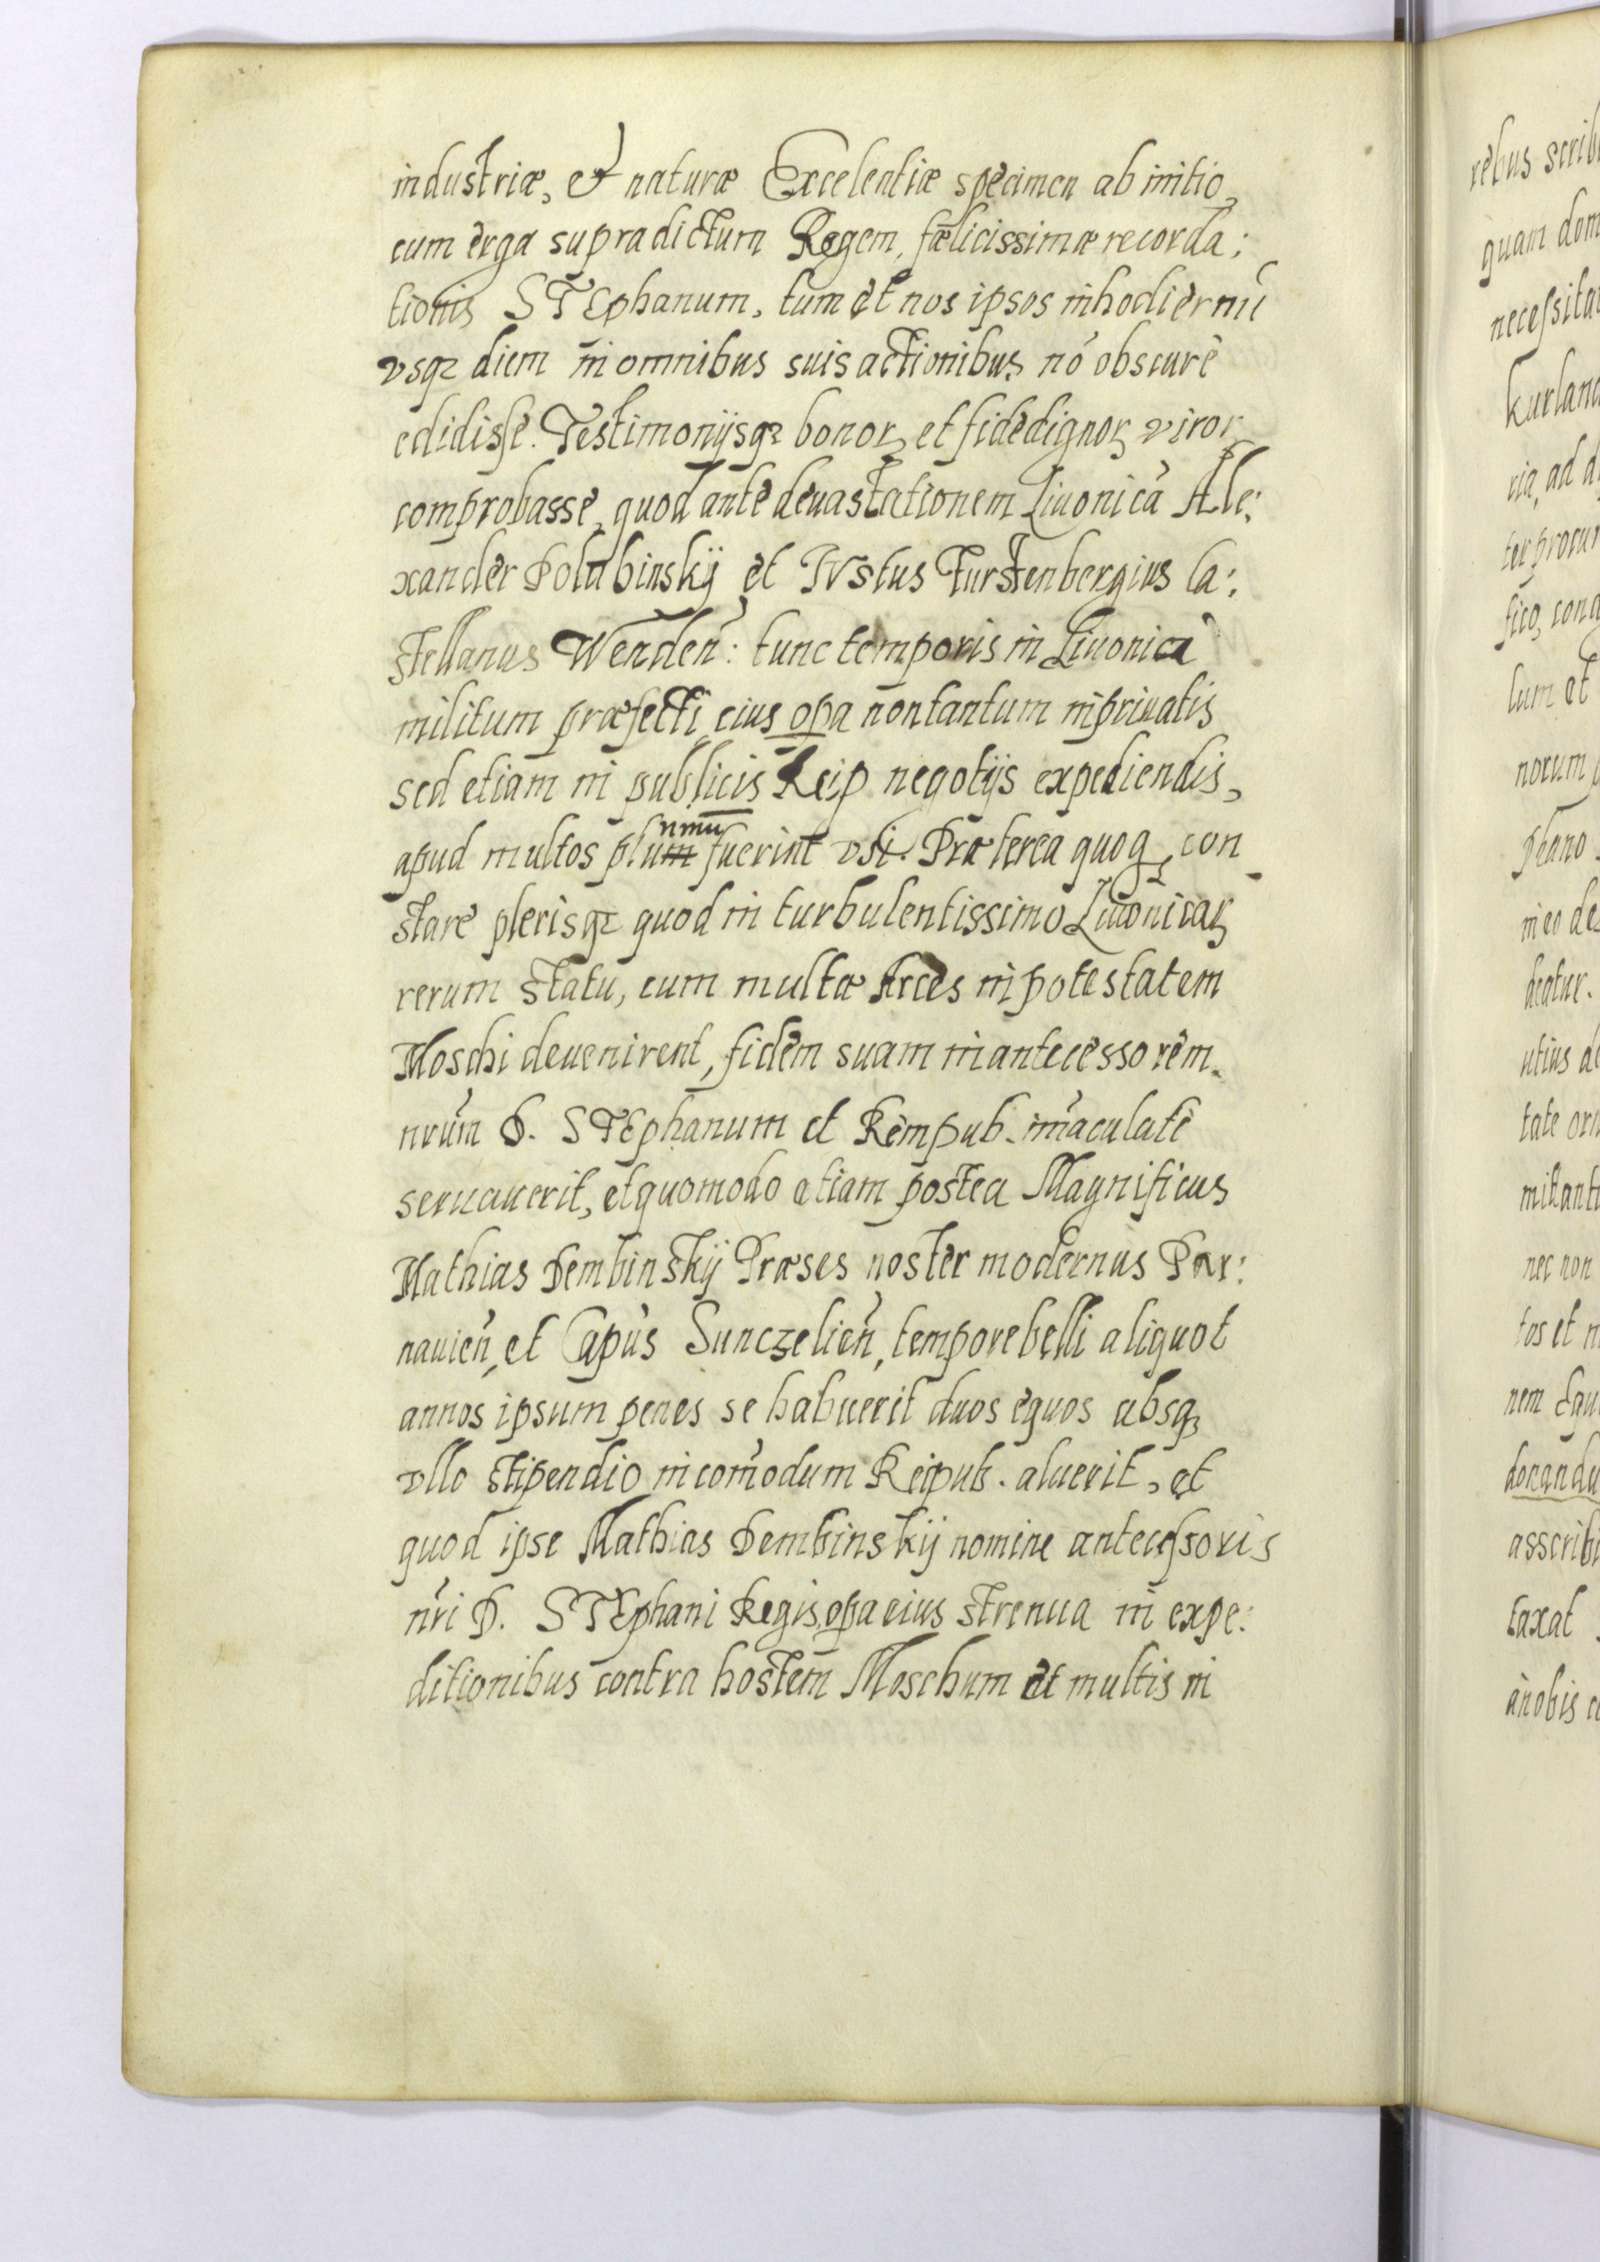 industriæ, et naturæ Excelentiæ specimen ab initio,
cum erga supradictum Regem, fælicissimæ recorda:
tionis STEphanum, tum et nos ipsos in hodiernū
vsq₂ diem in omnibus suis actionibus nō obscure
edidisse. Testimonijsq₂ bonoꝝ et fide dignoꝝ viroꝝ
comprobasse, quod ante deuastationem Liuonicā Ale:
xander Polubinskij et IVstus Furstenbergius Ca:
stellanus Wendeñ: tunc temporis in Liuonica
militum præfecti eius oꝑa non tantum in priuatis
sed etiam in publicis Reip negotijs expediendis,
apud multos plurimū fuerint vsi. Præterea quoqꝫ con
stare plerisq₂ quod in turbulentissimo Liuonicaꝝ
rerum statu, cum multæ Arces in potestatem
Moschi deuenirent, fidem suam in antecessorem
nr̃um D. STEphanum et Rempub. im̃aculate
seruauerit, et quomodo etiam postea Magnificus
Mathias Dembinskij Præses noster modernus Par:
nauieñ, et Capũs Sunczelieñ, tempore belli aliquot
annos ipsum penes se habuerit duos equos absqꝫ
vllo stipendio in com̃odum Reipub. aluerit, et
quod ipse Mathias Dembinskij nomine antecessoris
nr̃i D. STEphani Regis, oꝑa eius strenua in expe:
ditionibus contra hostem Moschum et multis in
rebus scrib
quam dom
necessita
Kurland
ria, ad d
ter procur
fico, cong
lum et
norum
phano
in eo de
deatur.
utius de
tate orn
mitant
nec non
tos et n
nem
donandu
asscrib
taxat
à nobis c